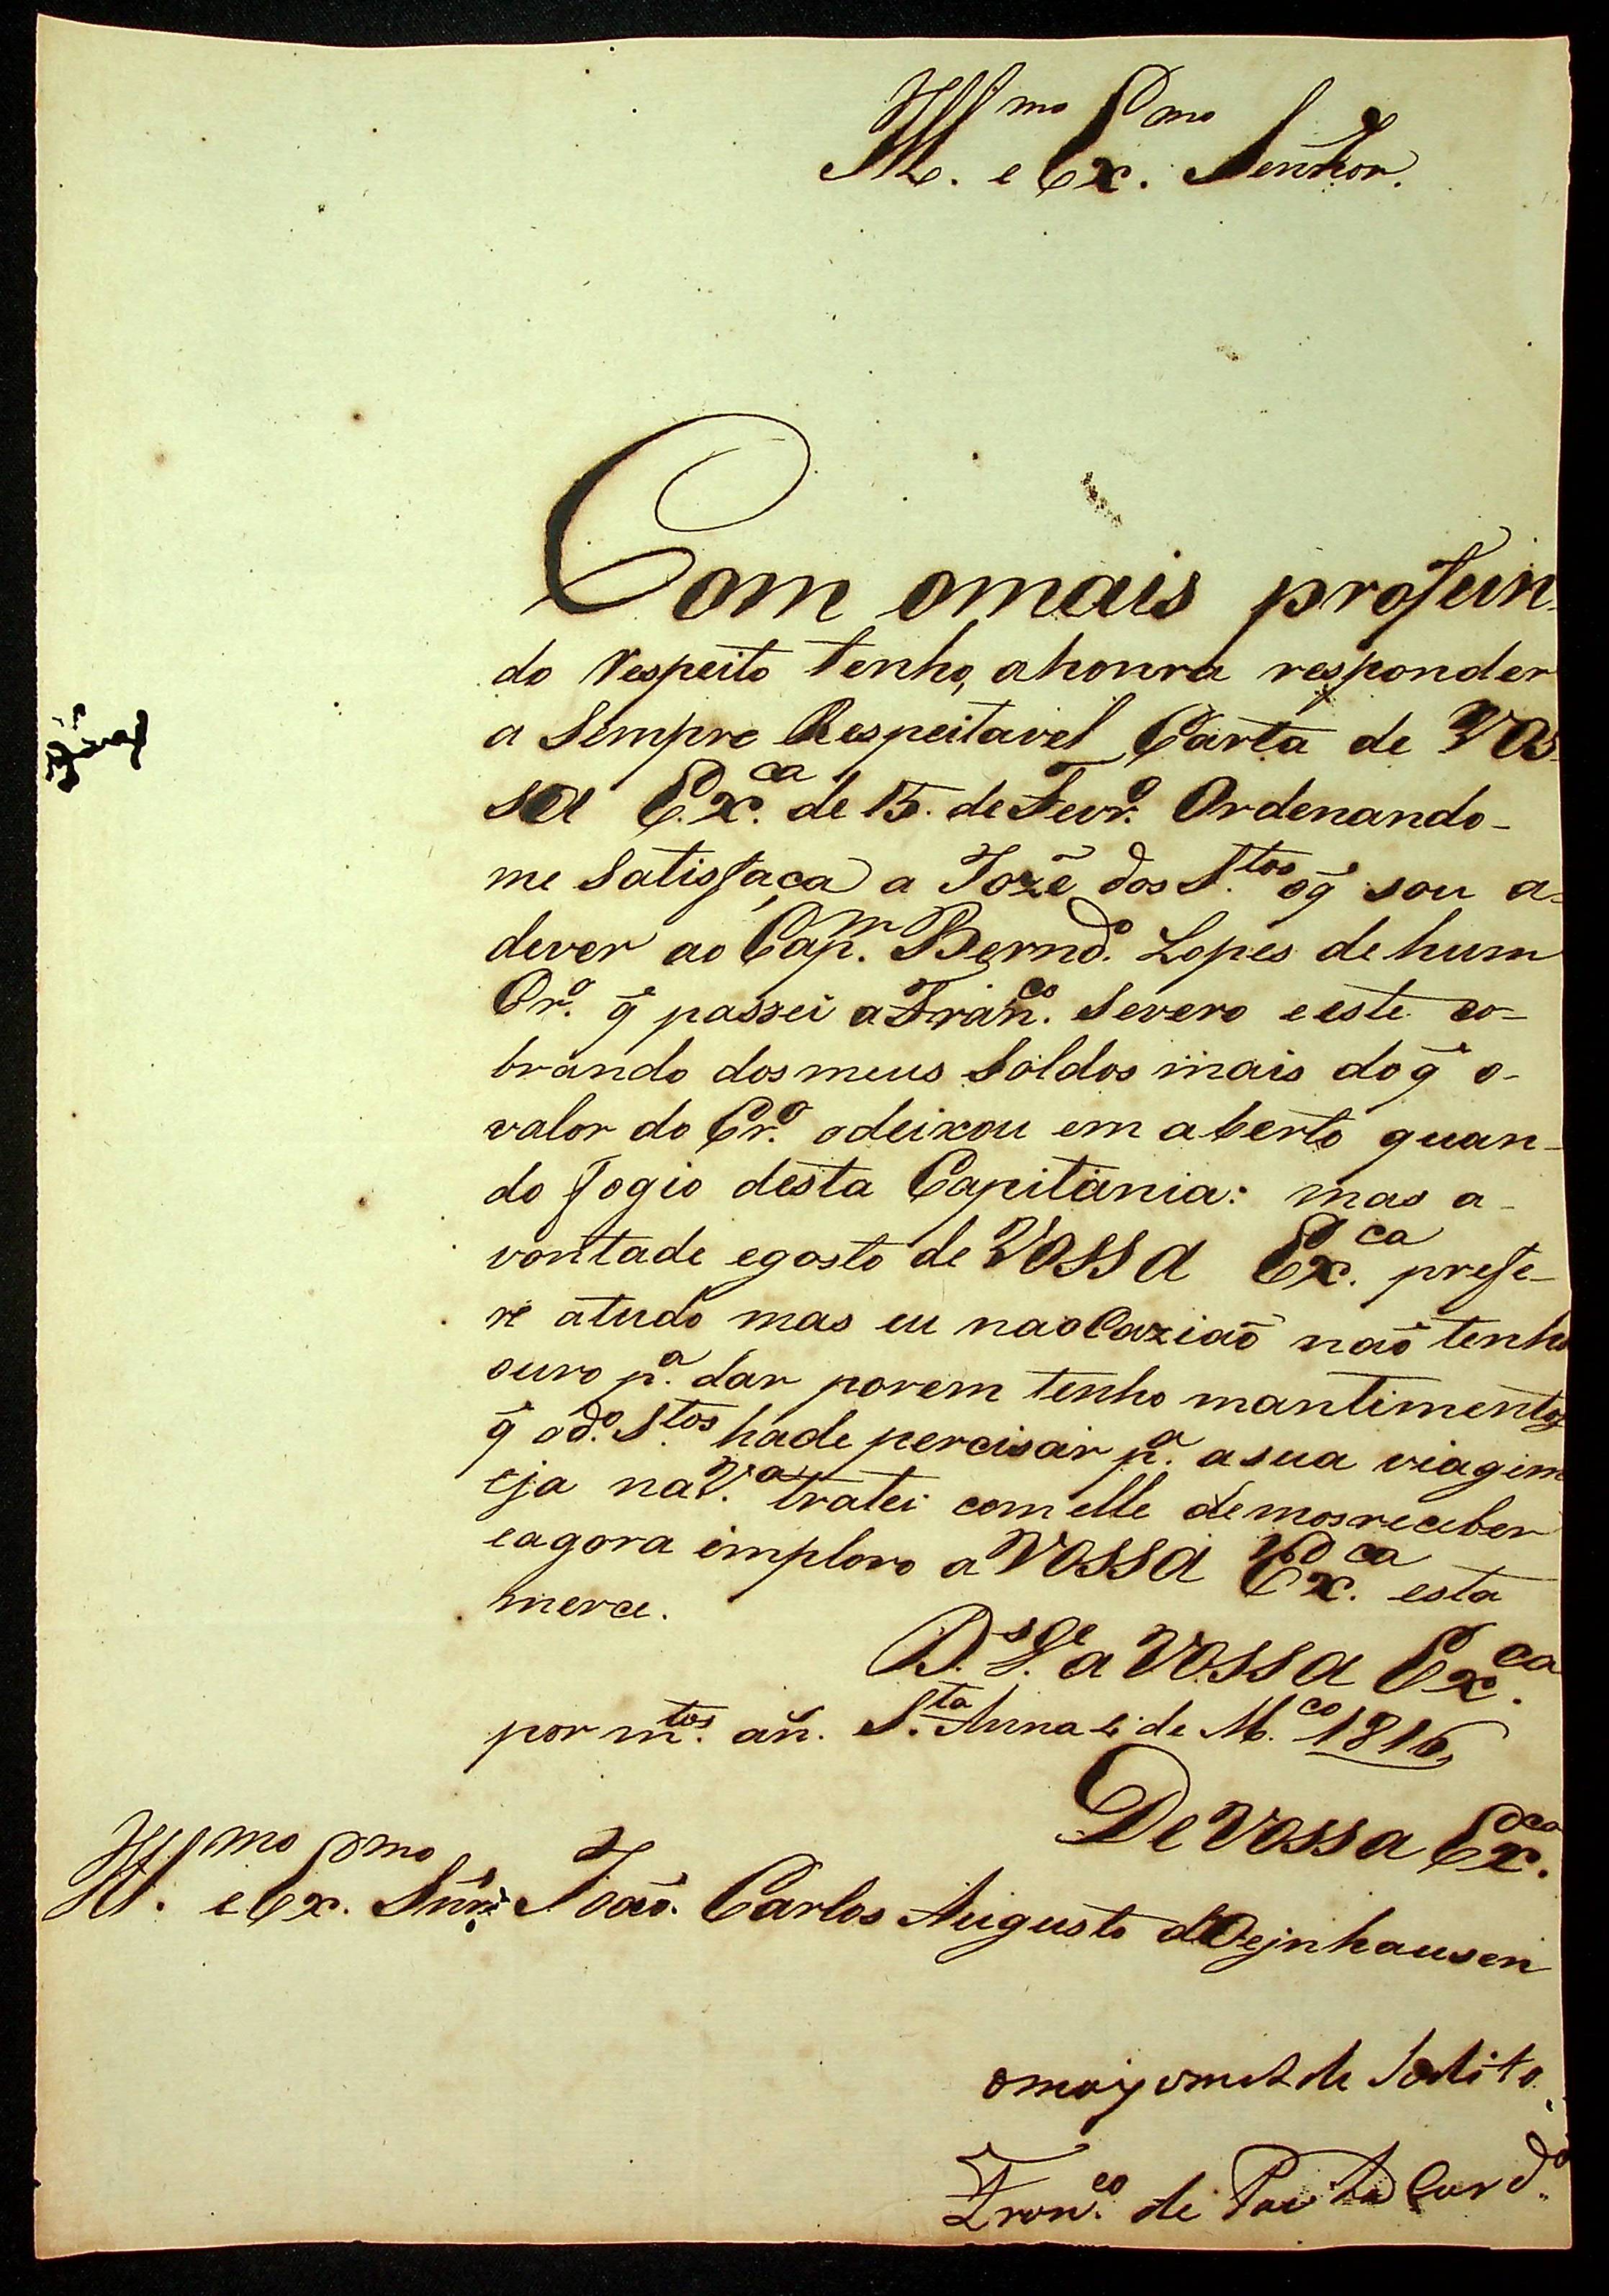 Ill.mo e Ex.mo Senhor.
Com omais profun-
do Respeito tenho, ahonra responder
a Sempre Respeitavel Carta de Vos-
sa Ex.ca de 15. de Fevr.o Ordenando-
me Satisfaça a Jozê dos S.tos oq̃ sou a-
dever ao Cap.m Bernd.o Lopes de hum
Cr.o q̃ passei a Fran.co Severo e este co-
brando dos meus Soldos mais doq̃ o-
valor do Cr.o odeixou em aberto quan-
do fogio desta Capitania: mas a-
vontade egosto de Vossa Ex.ca prefe-
re atudo mas eu naoCaziaõ naõ tenho
ouro p.a dar porem tenho mantimentos
q̃ od.o S.tos hade percisar p.a a sua viagem
eja na V.a tratei com elle demosreceber
eagora imploro a Vossa Ex.ca esta
merce.
D.s G.e a Vossa Ex.ca
por m.tos añ. S.ta Anna de M.co 1816
De Vossa Ex.ca
Ill.mo e Ex.mo Snr. Joaõ Carlos Augusto d'Oejnhausen
Fran.co de Paula Card.o